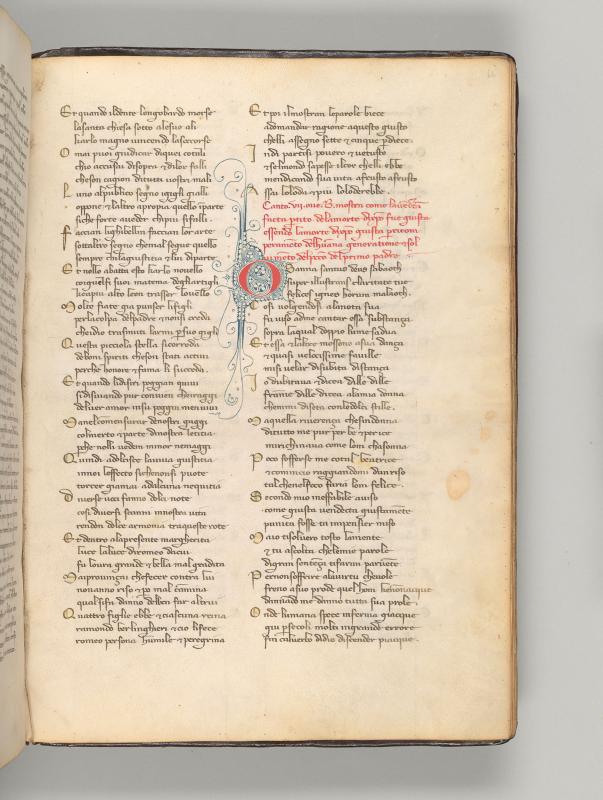 Et quando ildente longobardo morse
lasanta chiesa sotto alesue ali
karlo magno vincendo lasoccorse
O mai puoi giudicar diquei cotali
chio accusai disopra & dilor falli
cheson cagion ditutti vostri mali
L uno alpublico segno igigli gialli
oppone & laltro apropia quello aparte
siche forte aveder chipiu sifalli.
F accian lighibellin faccian lor arte
sottaltro segno chemal segue quello
sempre chilagiustitia & lui diparte
Et nollo abatta esto karlo novello
coiguelfi suoi ma tema degliartigli
chapiu alto leon trasser lovello
M olte fiate gia pianser lifigli
perlacolpa delpadre & nonsi creda
che dio trasmuti larmi p suoi gigli
Q uesta picciola stella sicorreda
deboni spiriti cheson stati activi
perche honore & fama li succeda.
Et quando lidisiri poggian quivi
si disviando pur convien cheiraggi
delvero amor insu poggin men vivi
M anelcomensurar denostri gaggi
colmerto & parte dinostra letitia
perche nolli vedem minor nemaggi
Quindi adolcisce laviva giustitia
innoi laffecto siche nonsi puote
torcer giamai adalcuna nequitia
D iverse voci fanno dolci note
cosi diversi scanni innostra vita
rendon dolce armonia traqueste rote
Et dentro alapresente margherita
luce laluce diromeo dicui
fu lovra grande & bella mal gradita
M aiprovinçai chefecer contra lui
nonanno riso & po mal camina
qual sifa danno delben fare altrui
Q uattro figlie ebbe & ciascuna reina
ramondo berlinghieri & cio lifece
romeo persona humile & peregrina
Et poi ilmosson leparole biece
adomandar ragione aquesto giusto
chelli assegno sette & cinque per diece
I ndi partisi povero & vetusto
& selmondo sapesse ilcor chelli ebbe
mendicando sua vita afrusto afrusto
Assai loloda & piu loloderebbe.
Canto .vii. ove .B. mostra come lavendetta
facta
delamorte di xpo fue giusta
essendo lamorte di xpo giusta
delhumana generatione & sol
delprimo padre
Osanna sanctus deus sabaoth
super illustrans claritate tua
felices ignes horum malacoth.
C osi volgendosi alanota sua
fu viso adme cantare essa substança
sopra laqual doppio lume sadua
Et essa & laltre mossero asua dança
& quasi velocissime faville
misi velar disubita distança
I o dubitava & dicea dille dille
frame dille dicea alamia donna
chemmi diseta conledolci stille.
M aquella riverença chesindonna
ditutto me pur per be & per ice
mirichinava come lom chasonna
Poco sofferse me cotal beatrice
& comincio raggiandomi dun riso
tal chenelfoco faria lom felice.
Secondo mio infallibile aviso
come giusta vendetta giustamente
punita fosse tia inpensier miso
M aio tisolvero tosto lamente
& tu ascolta chelemie parole
digran sentença tifaran presente
Per non soffrire alavirtu chevole
freno asuo prode quel hom chenonnacque
dannando se danno tutta sua prole.
Onde lumana spece inferma giacque
giu per secoli molti ingrande errore
fin calverbo didio discender piacque.